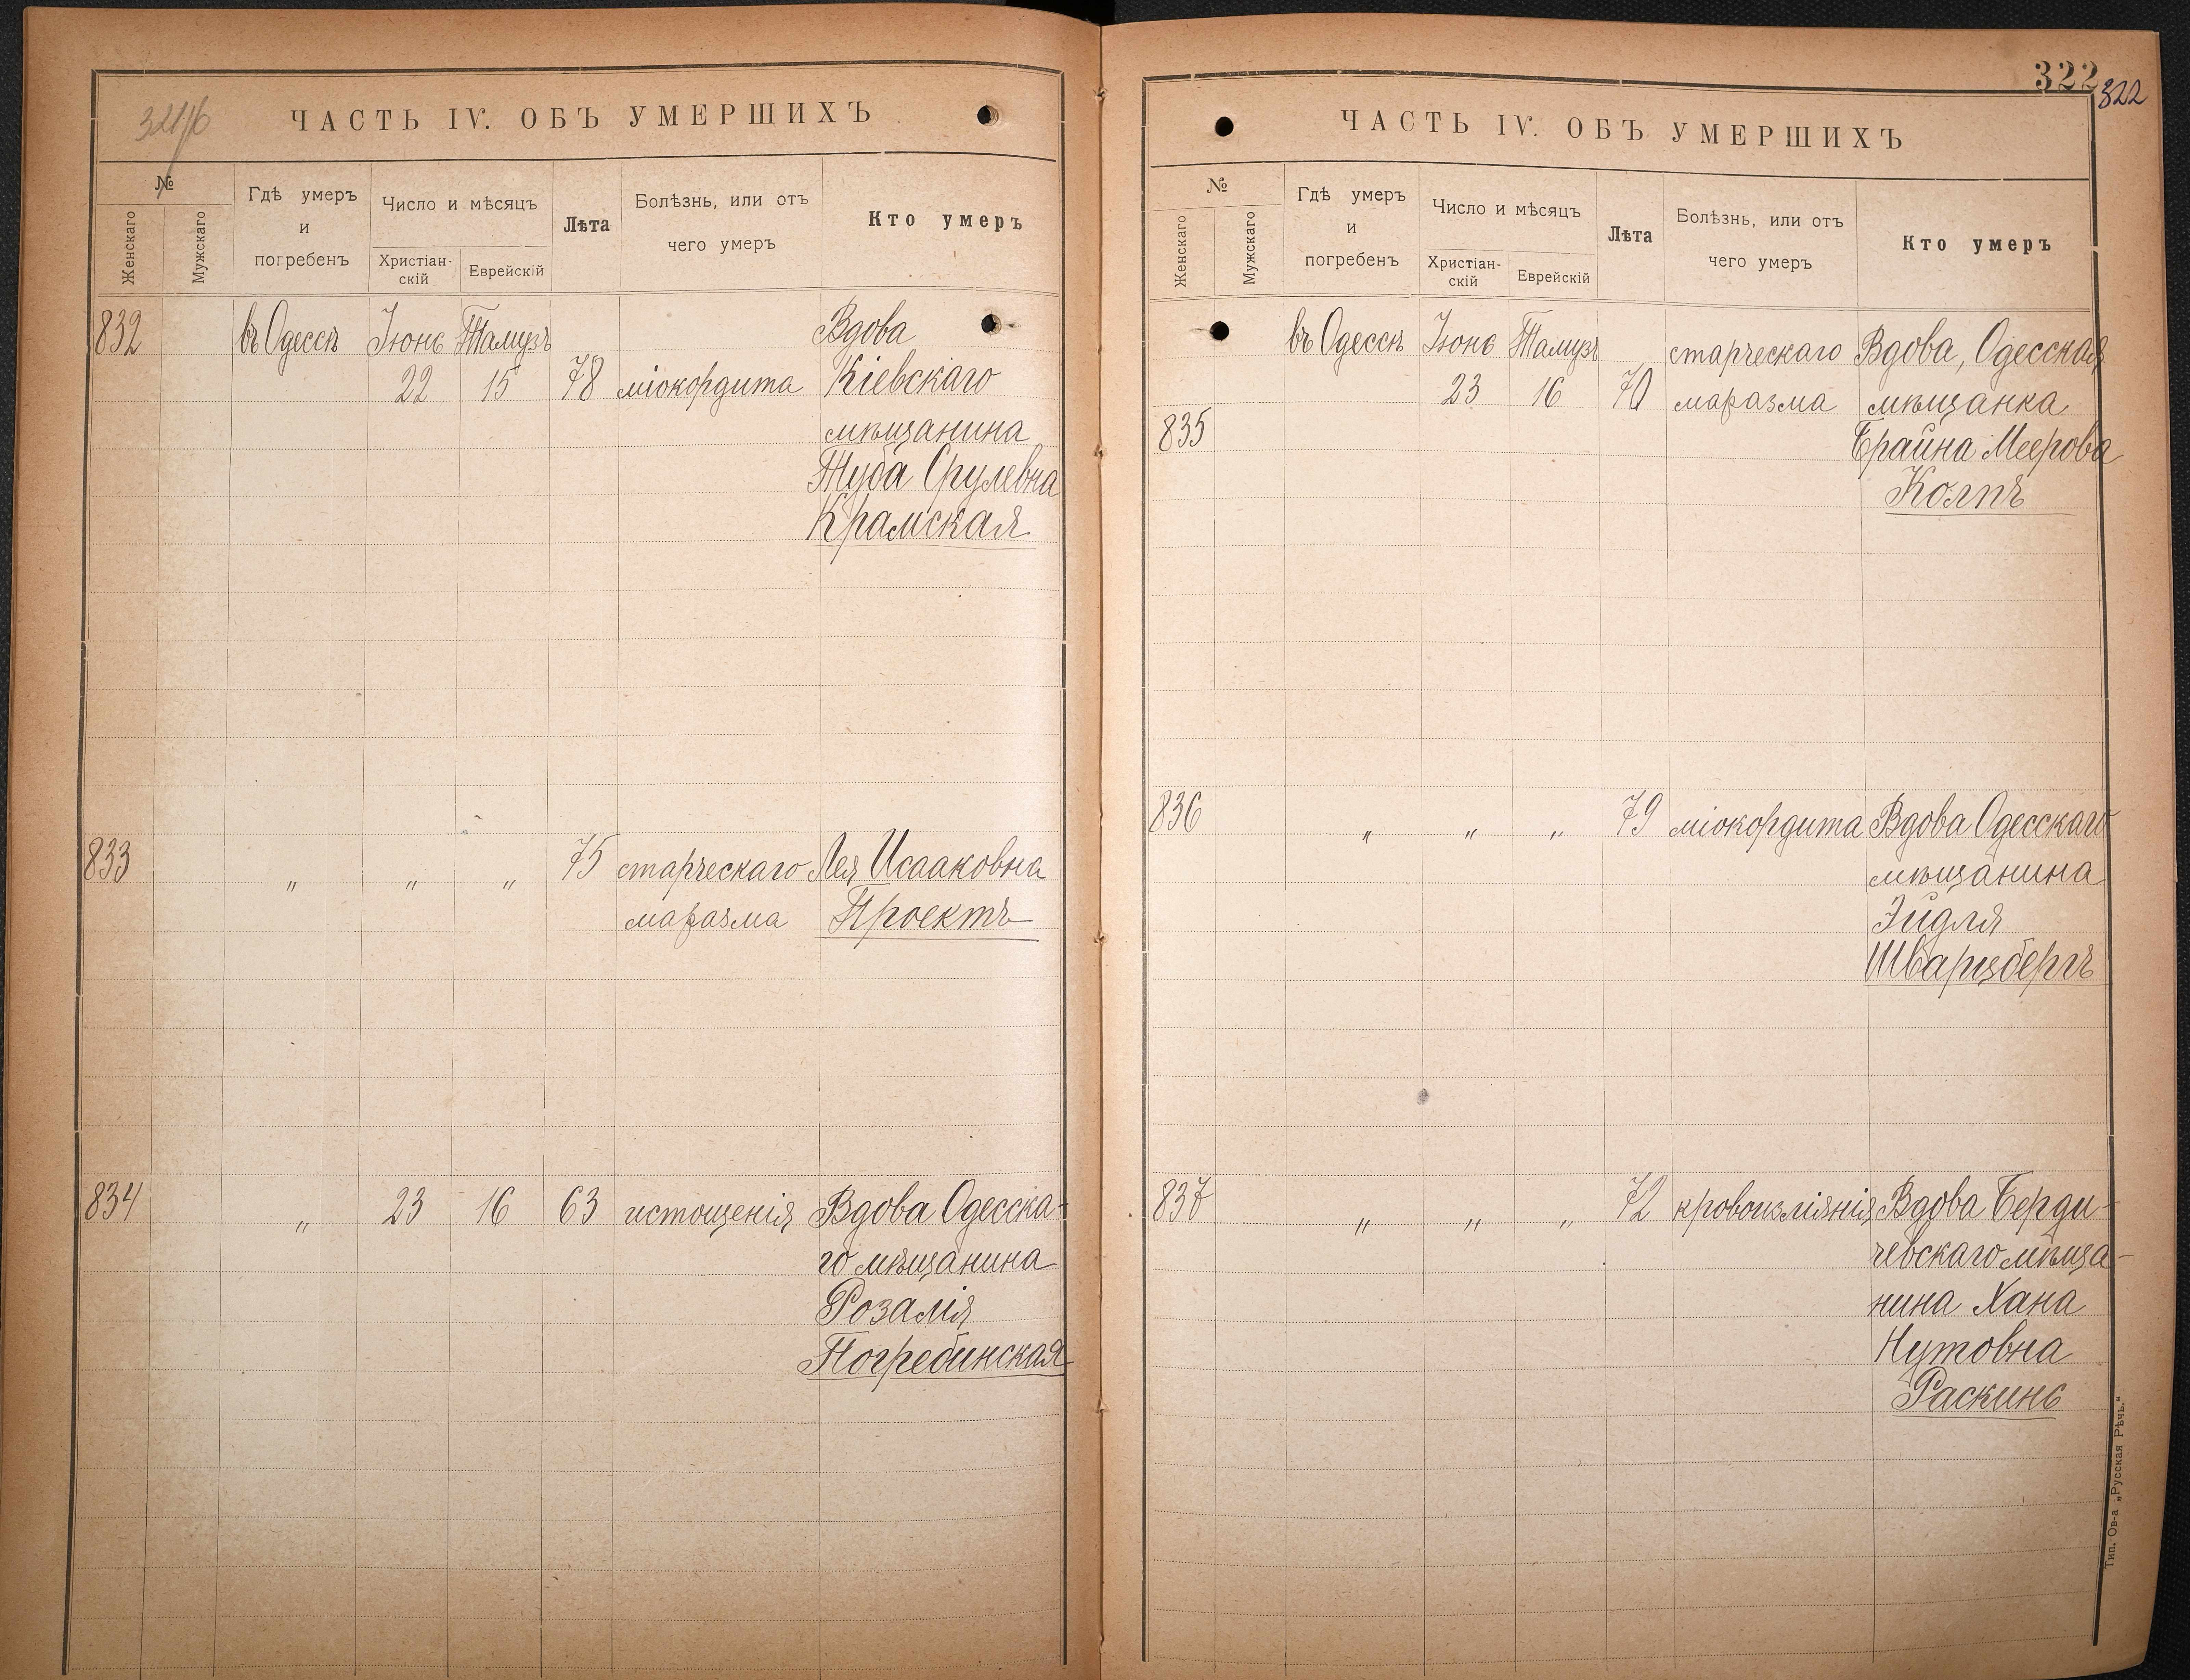 ЧАСТЬ IV. ОБЪ УМЕРШИХЪ
№
Женскаго
Мужскаго
Гдѣ умеръ
и
погребенъ
Число и мѣсяцъ
Христіан-
скій
Еврейскій
Лѣта
Болѣзнь, или отъ
чего умеръ
Кто умеръ
832 въ Одессѣ Іюнь Тамузъ Вдова
22 15 78 міокордита Кіевскаго
мѣщанина
Туба Срулевна
Крамская
833 " " " 75 старческаго Лея Исааковна
маразма Проектъ
834 " 23 16 63 истощенія Вдова Одесска-
го мѣщанина
Розалія
Погребинская
322
322
ЧАСТЬ IV. ОБЪ УМЕРШИХЪ
№
Женскаго
Мужскаго
Гдѣ умеръ
и
погребенъ
Число и мѣсяцъ
Христіан-
скій
Еврейскій
Лѣта
Болѣзнь, или отъ
чего умеръ
Кто умеръ
въ Одессѣ Іюнь Тамузъ старческаго Вдова, Одесская
23 16 70 маразма мѣщанка
835 Браина Меерова
Колпъ
836 " " " 79 міокордита Вдова Одесскаго
мѣщанина
Эйдля
Шварцбергъ
837 " " " 72 кровоизліянія Вдова Берди-
чевскаго мѣща-
нина Хана
Нутовна
Раскинъ
Тип. Ов-а „Русская Рѣчь."